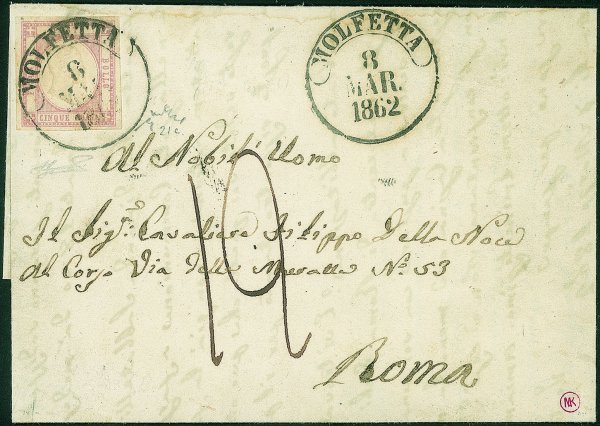 MOLFETTA
8
MAR.
BOLLO
CINQUE
MOLFETTA
8
MAR.
1862
Al Nobil' Uomo
Il Sig.r Cavaliere Filippo Della Noce
Al Corso Via delle Muratte No. 53
19
Roma
NK